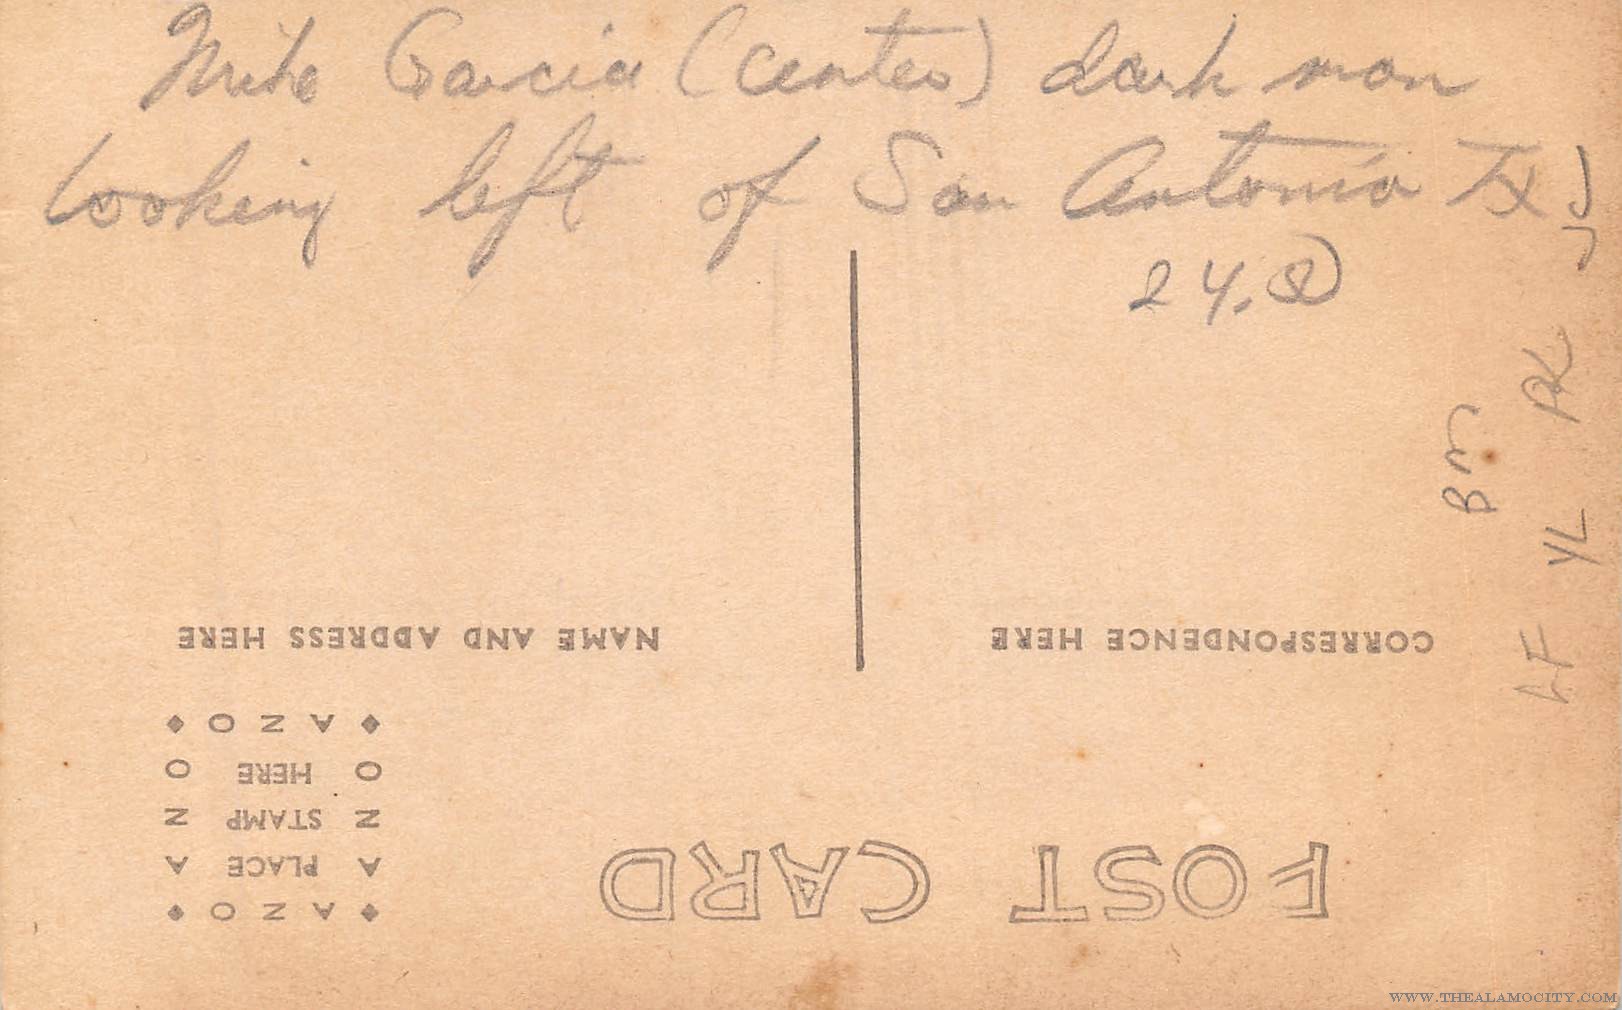 Mike Garcia (center) dark man
looking left of San Antonio TX
24.
JJ
PK
BM
YL
LF
CORRESPONDENCE HERE
NAME AND ADDRESS HERE
POST CARD
AZO
PLACE
STAMP
HERE
AZO
WWW.THEALAMOCITY.COM